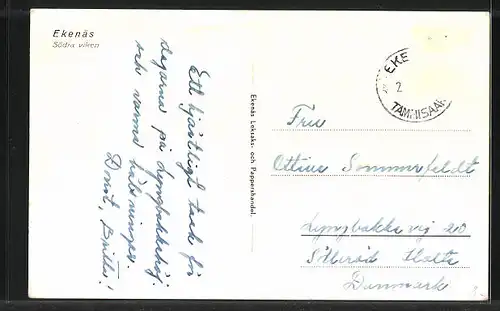 Ekenäs
Södra viken
Ett hjärtligt tack för
dagarna på Lyngbakkehøj.
och varma hälsningar.
Dorrit, Britta!
Ekenäs Leksaks- och Pappershandel.
EKE
2
TAMMISAA
Fru
Ottine Sommerfeldt
Lyngbakkevej 20
Søllerød Holte
Danmark